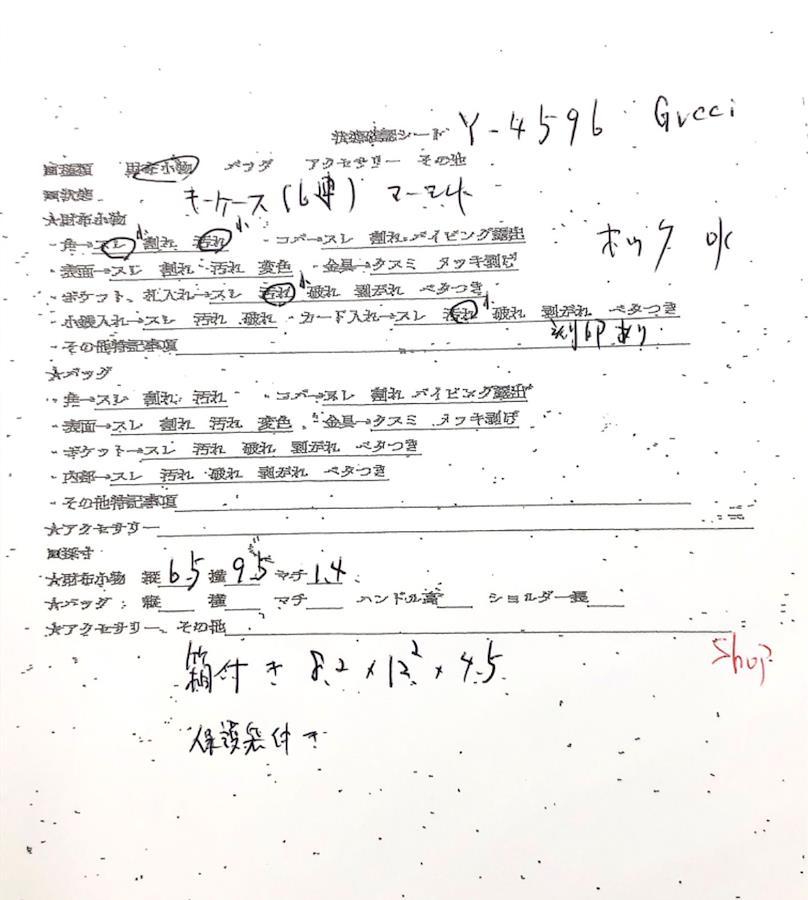 状態確認シート Y-4596 Gucci
■種類 財布小物 バッグ アクセサリー その他
■状態 キーケース(6連)
★財布小物
・角→スレ 小 割れ 汚れ 小 ・コバ→スレ 割れ パイピング露出 ホック
・表面→スレ 割れ 汚れ 変色 ・金具→クスミ メッキ剥げ
・ポケット、札入れ→スレ 汚れ 小 破れ 剥がれ ベタつき
・小銭入れ→スレ 汚れ 破れ ・カード入れ→スレ 汚れ 小 破れ 剥がれ ベタつき
・その他特記事項 刻印あり
★バッグ
・角→スレ 割れ 汚れ ・コバ→スレ 割れ パイピング露出
・表面→スレ 割れ 汚れ 変色 ・金具→クスミ メッキ剥げ
・ポケット→スレ 汚れ 破れ 剥がれ ベタつき
・内部→スレ 汚れ 破れ 剥がれ ベタつき
・その他特記事項
★アクセサリー
■採寸
★財布小物 縦 6.5 横 9.5 マチ 1.4
★バッグ: 縦 横 マチ ハンドル高 ショルダー長
★アクセサリー、その他
箱付き 8.2 x 12² x 4.5
Shop
保護袋付き